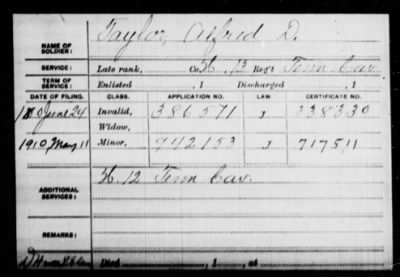 Taylor, Alfred D.
NAME OF SOLDIER:
SERVICE: Late rank, Co. H, 13 Reg't Tenn Cav.
TERM OF SERVICE: Enlisted , 1 Discharged , 1
DATE OF FILING. CLASS. APPLICATION NO. LAW. CERTIFICATE NO.
June 24 Invalid, 386571 J 338330
Widow,
1910, May 11 Minor, 942153 J 717511
ADDITIONAL SERVICES: H. 12 Tenn Cav.
REMARKS:
Died , 1 , at